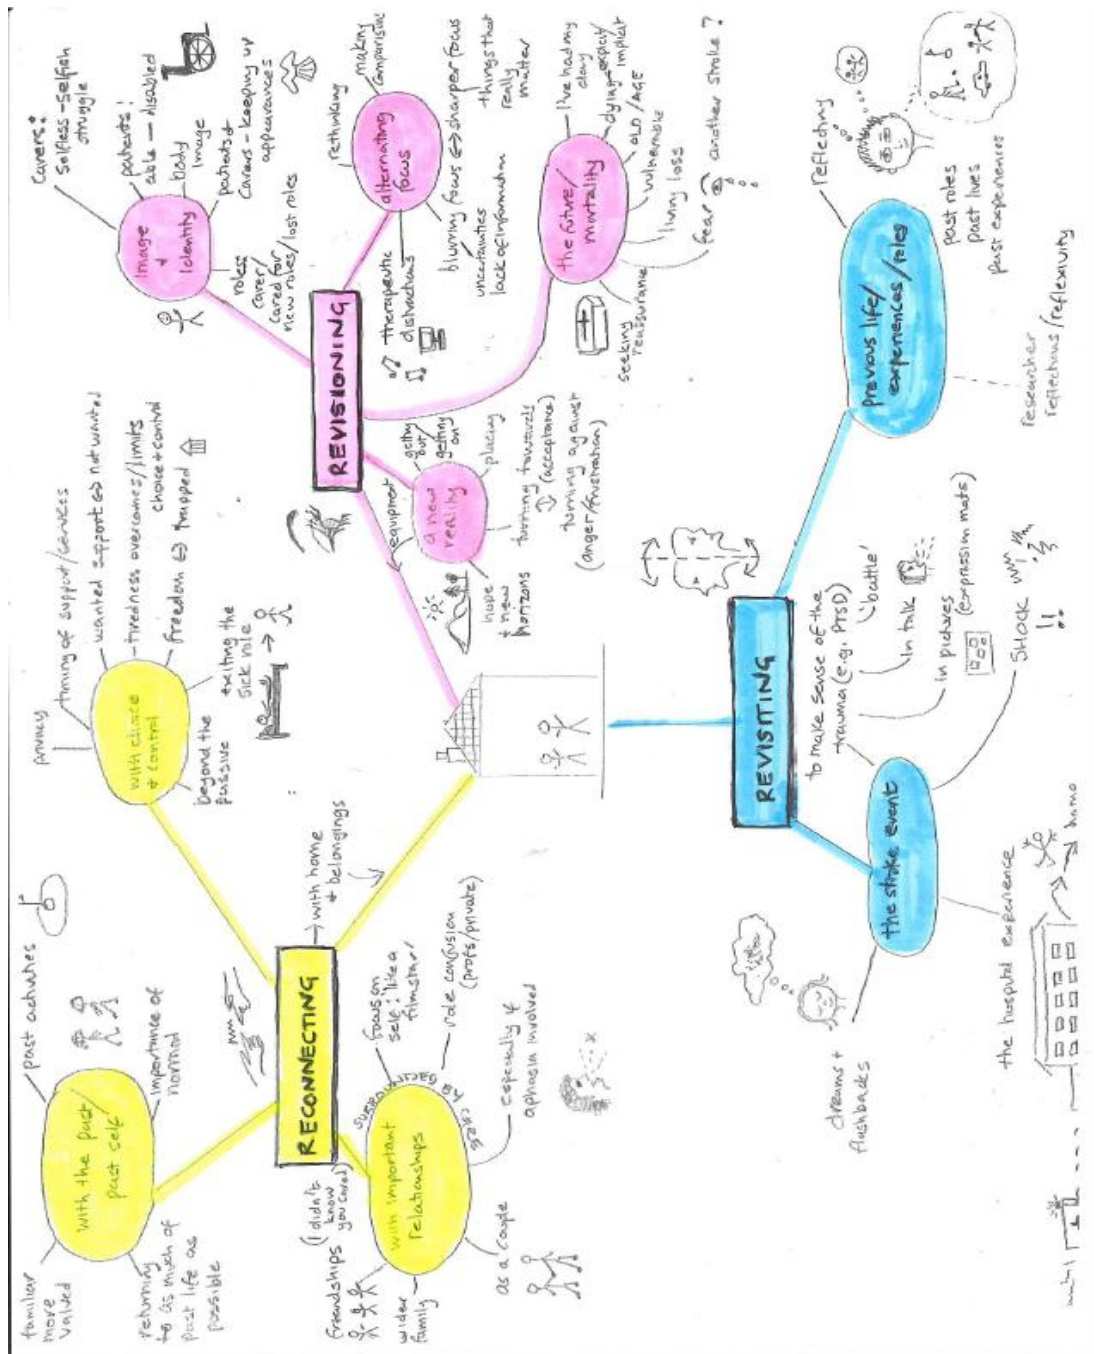 RECONNECTING
→ with home
+ belongings
with the past/
past self
past activities
importance of
normal
familiar
more
valued
returning
to as much of
past life as
possible
with choice
+ control
privacy
timing of support/services
wanted support ⇔ not wanted
tiredness overcomes/limits
choice + control
freedom ⇔ trapped
exiting the
sick role
beyond the
passive
with important
relationships
SURROUNDED BY CARE
focus on
self: 'like a
filmstar'
role confusion
(profs/private)
especially if
aphasia involved
as a couple
wider
family
friendships
(I didn't
know
you cared)
REVISIONING
image
+
identity
carers:
selfless-selfish
struggle
patients:
able — disabled
body
image
patients +
carers - keeping up
appearances
roles:
carer/
cared for
new roles/lost roles
alternating
focus
rethinking
making
comparisons
blurring focus ⇔ sharper focus
uncertainties
lack of information
things that
really
matter
therapeutic
distractions
the future/
mortality
I've had my
day
dying explicit/
implicit
OLD/AGE
vulnerable
living loss
fear
another stroke?
seeking
reassurance
a new
reality
equipment
getting
out/
getting
on
placing
turning towards
⇕ (acceptance)
turning against
(anger/frustration)
hope
+ new
horizons
REVISITING
the stroke event
to make sense of the
trauma (e.g. PTSD)
'battle'
in talk
in pictures
(expression mats)
SHOCK
!!
the hospital experience
home
dreams +
flashbacks
previous life/
experiences/roles
reflecting
past roles
past lives
past experiences
researcher
reflections/reflexivity